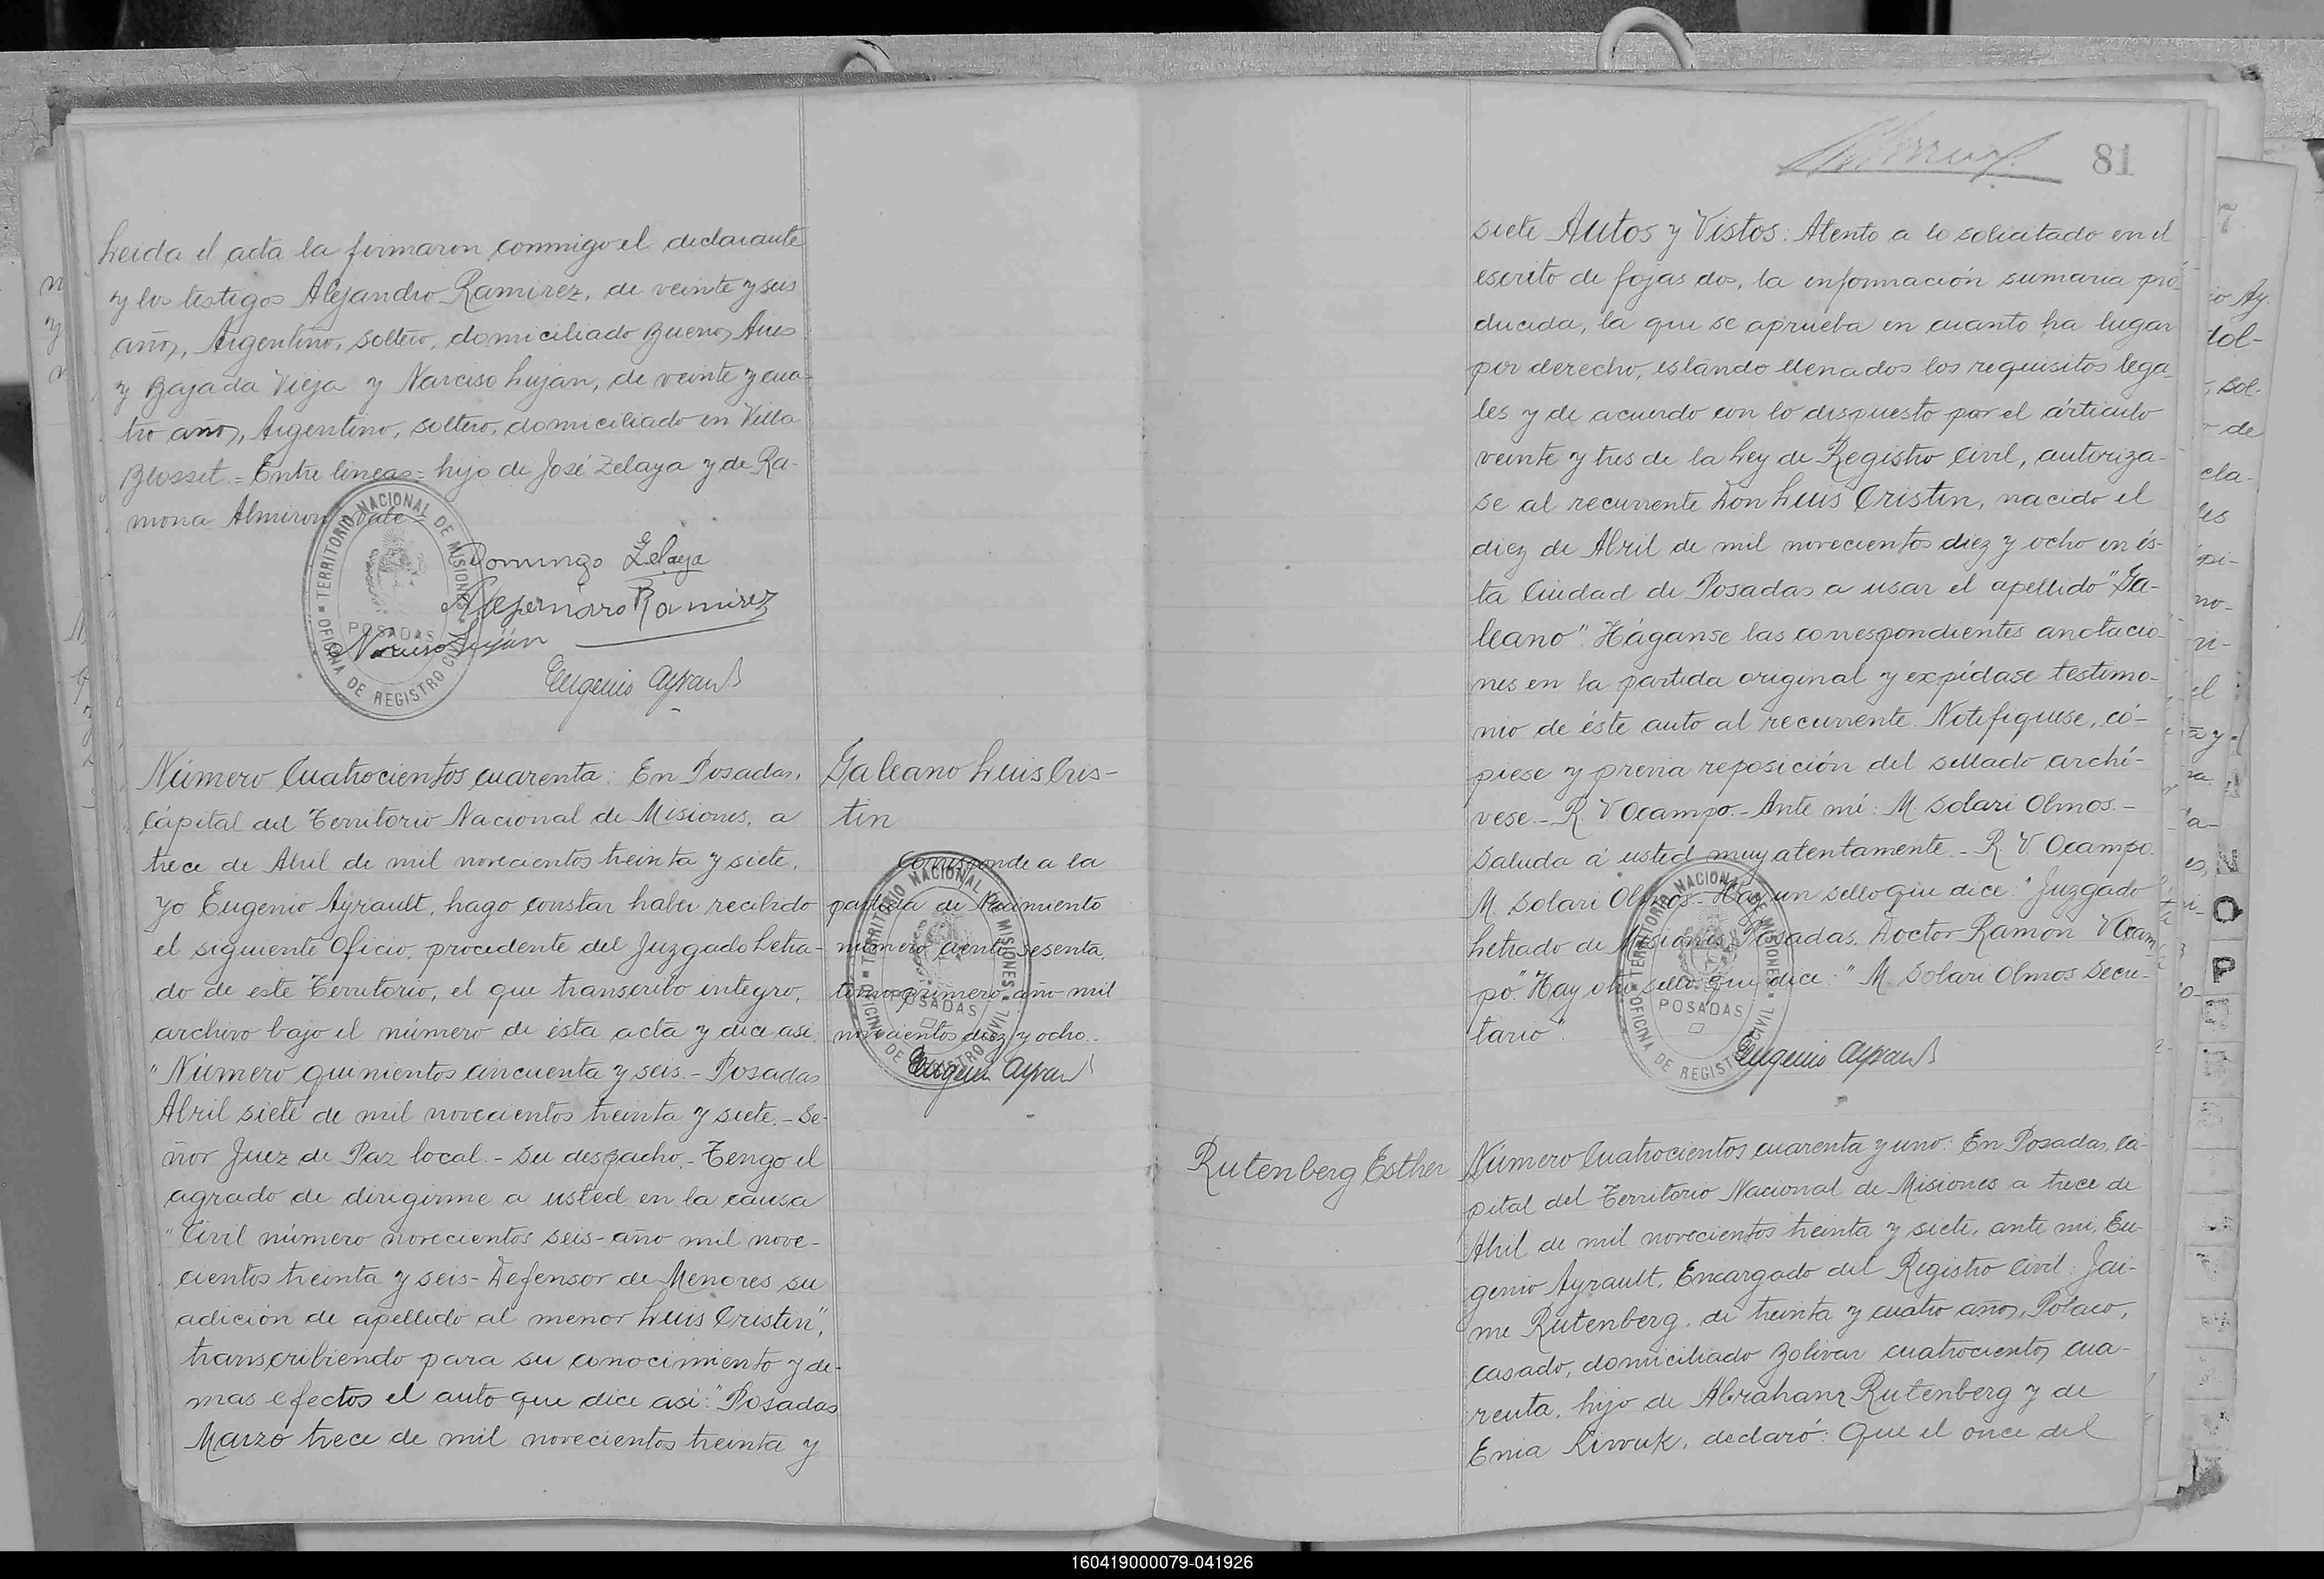 Leida el acta la firmaron conmigo el declarante
y los testigos Alejandro Ramirez, de veinte y seis
años, Argentino, soltero, domiciliado Buenos Aires
y Bajada Vieja y Narciso Lujan, de veinte y cua-
tro años, Argentino, soltero, domiciliado en Villa
Blosset.- Entre lineas= hijo de José Zelaya y de Ra-
mona Almiron vale=
Domingo Zelaya
Alejandro Ramirez
Narciso Luján
Eugenio Ayrault
TERRITORIO NACIONAL DE MISIONES
POSADAS
OFICINA DE REGISTRO CIVIL
Número Cuatrocientos cuarenta: En Posadas,
Cápital del Territorio Nacional de Misiones, a
trece de Abril de mil novecientos treinta y siete,
yo Eugenio Ayrault, hago constar haber recibido
el siguiente Oficio, procedente del Juzgado Letra-
do de este Territorio, el que transcribo integro,
archivo bajo el número de ésta acta y dice asi:
"Número quinientos cincuenta y seis.- Posadas
Abril siete de mil novecientos treinta y siete.- Se-
ñor Juez de Paz local.- Su despacho.- Tengo el
agrado de dirigirme a usted en la causa
"Civil número novecientos seis- año mil nove-
cientos treinta y seis- Defensor de Menores su
adición de apellido al menor Luis Cristin",
transcribiendo para su conocimiento y de-
mas efectos el auto que dice asi: "Posadas
Marzo trece de mil novecientos treinta y
Galeano Luis Cris-
tin
Corresponde a la
partida de Nacimiento
número ciento sesenta,
tomo primero, año mil
novecientos diez y ocho.-
Eugenio Ayrault
TERRITORIO NACIONAL DE MISIONES
POSADAS
OFICINA DE REGISTRO CIVIL
81
siete Autos y Vistos: Atento a lo solicitado en el
escrito de fojas dos, la información sumaria pro-
ducida, la que se aprueba en cuanto ha lugar
por derecho, estando llenados los requisitos lega-
les y de acuerdo con lo dispuesto por el árticulo
veinte y tres de la Ley de Registro Civil, autoriza-
se al recurrente Don Luis Cristin, nacido el
diez de Abril de mil novecientos diez y ocho en és-
ta Ciudad de Posadas a usar el apellido "Ga-
leano". Háganse las correspondientes anotacio-
nes en la partida original y expídase testimo-
nio de éste auto al recurrente. Notifiquese, có-
piese y previa reposición del sellado archí-
vese.- R. V Ocampo.- Ante mí: M. Solari Olmos.-
Saluda á usted muy atentamente.- R. V. Ocampo.
M. Solari Olmos.- Hay un sello que dice: "Juzgado
Letrado de Misiones, Posadas, Doctor Ramon V Ocam-
po". Hay otro sello que dice: "M. Solari Olmos Secre-
tario".
Eugenio Ayrault
TERRITORIO NACIONAL DE MISIONES
POSADAS
OFICINA DE REGISTRO CIVIL
Rutenberg Esther
Número Cuatrocientos cuarenta y uno: En Posadas, Cá-
pital del Territorio Nacional de Misiones a trece de
Abril de mil novecientos treinta y siete, ante mi, Eu-
genio Ayrault, Encargado del Registro Civil: Jai-
me Rutenberg, de treinta y cuatro años, Polaco,
casado, domiciliado Bolivar cuatrocientos cua-
renta, hijo de Abraham Rutenberg y de
Enia Kirvuk, declaró: Que el once del
N
O
P
160419000079-041926